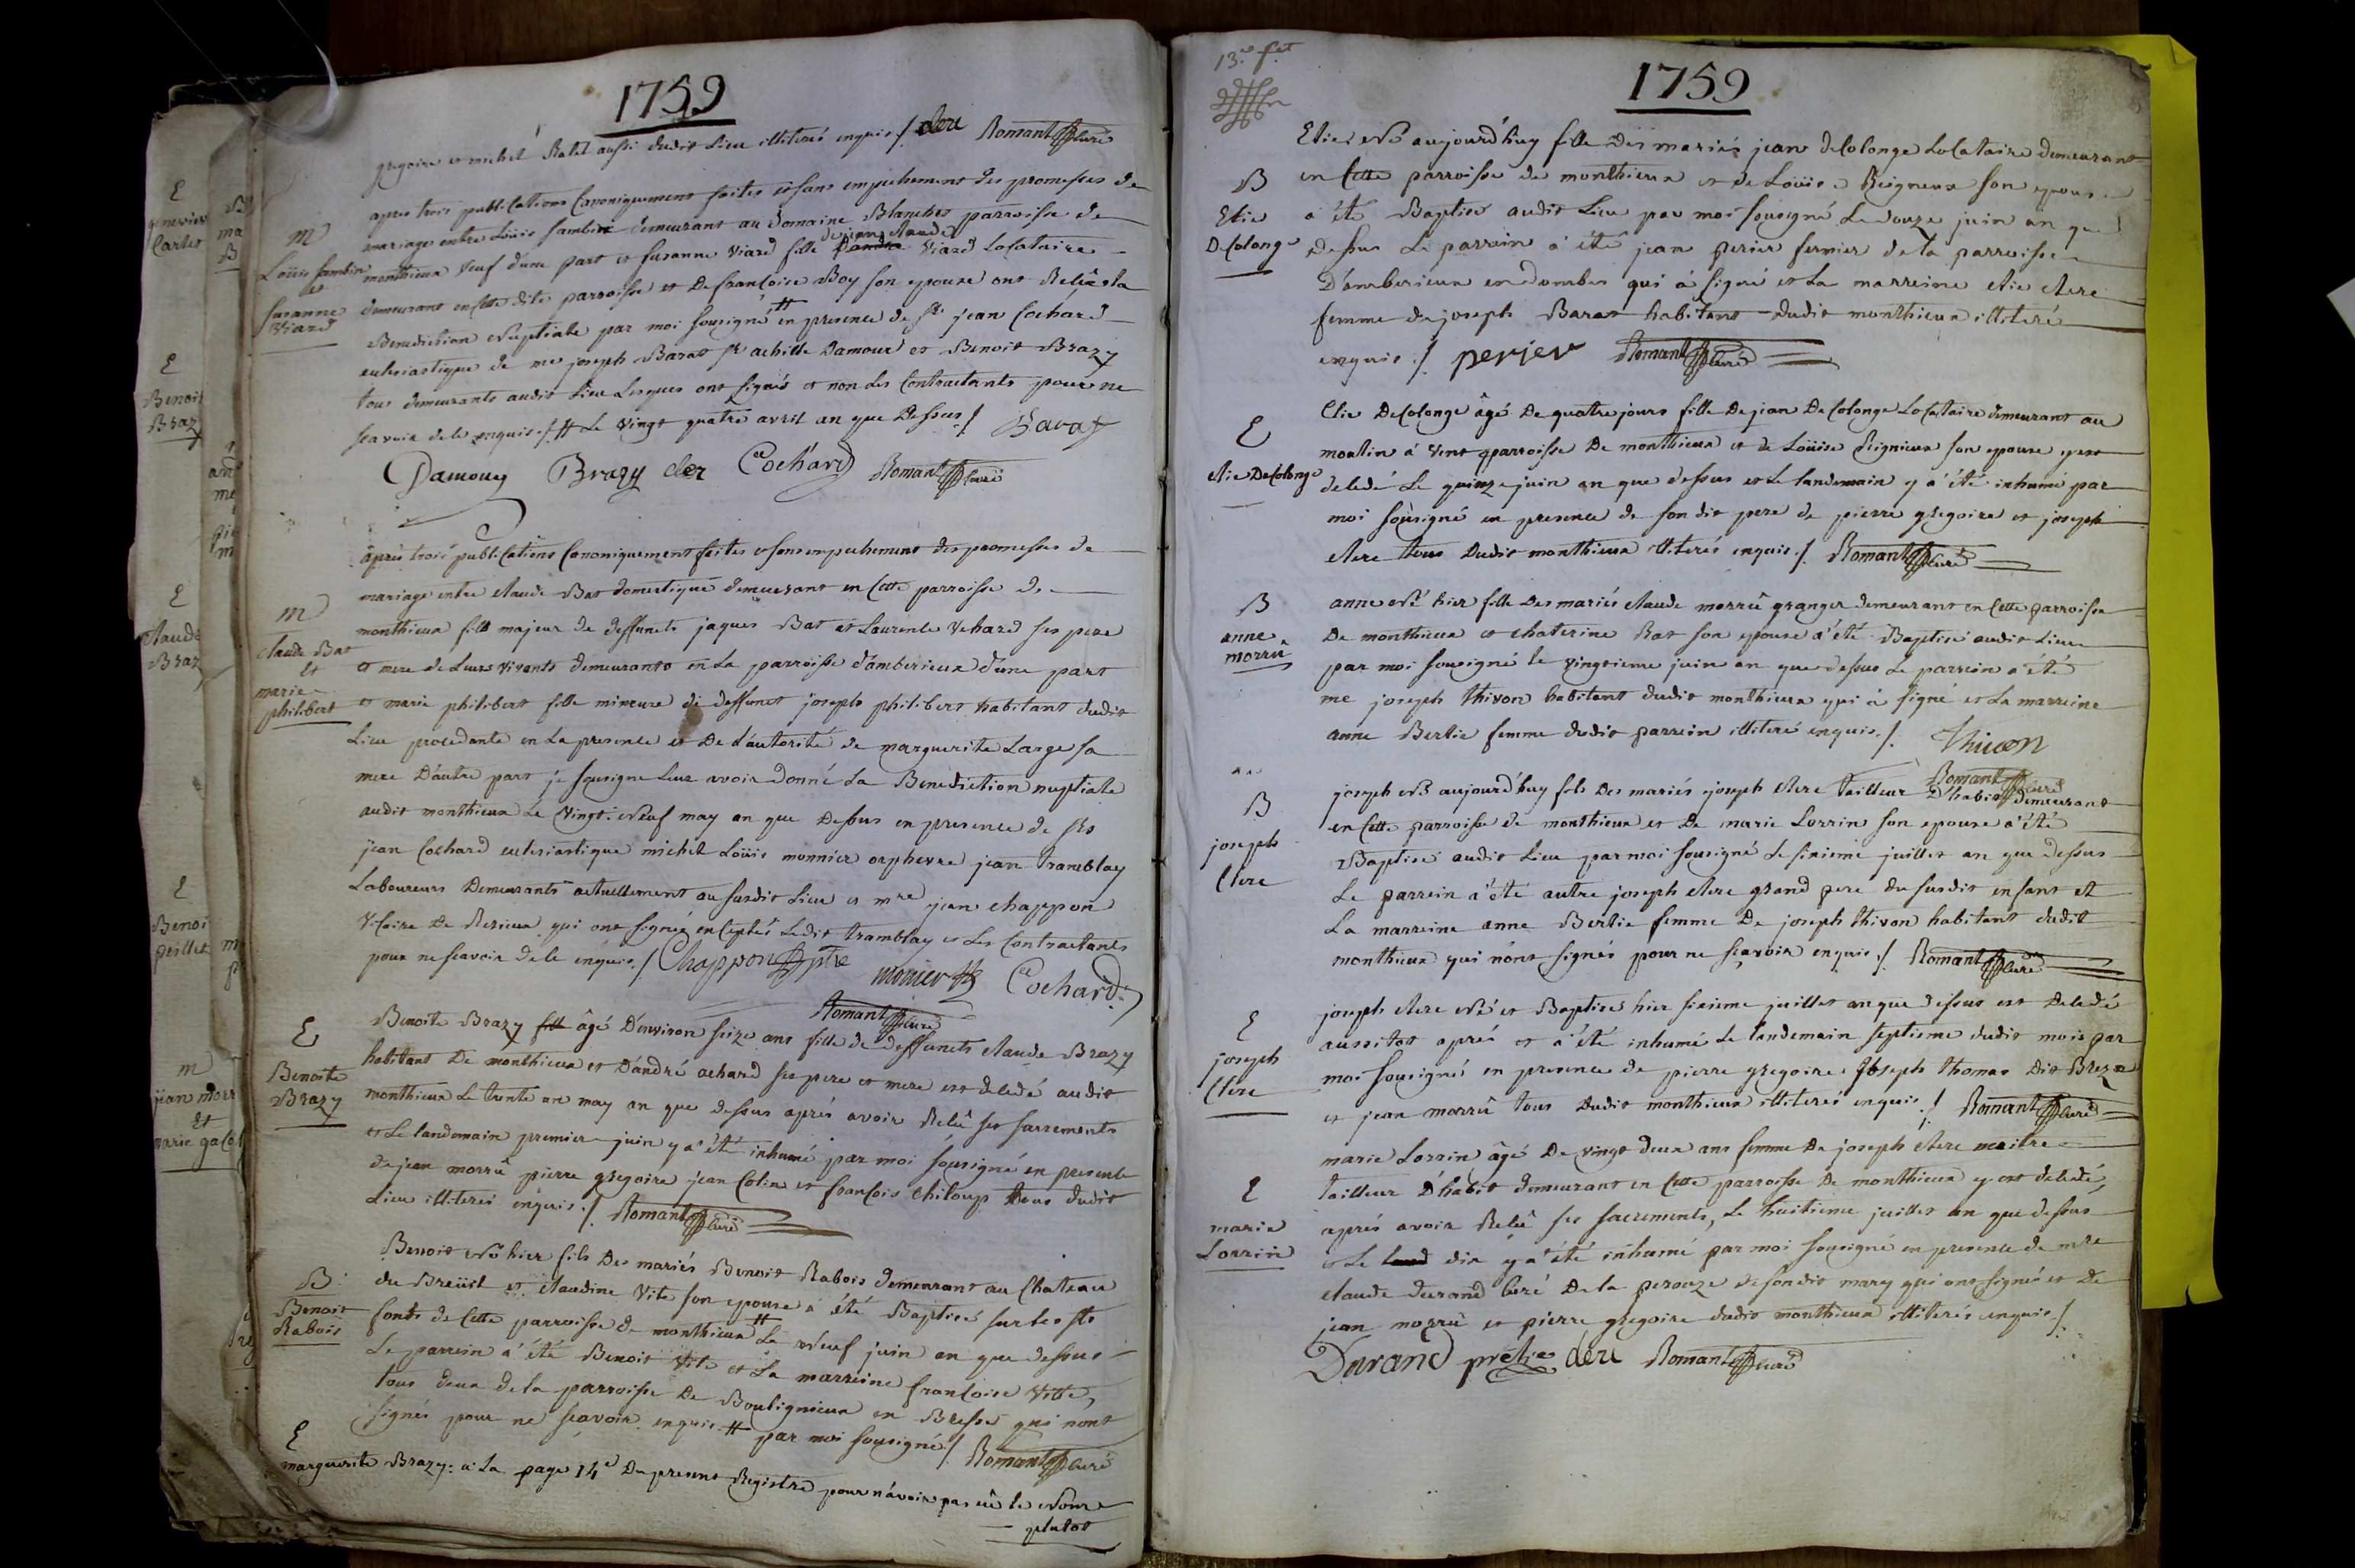 1759
gregoire et michel Ratel aussi dudit Lieu illiterés enquis ./. clerc Romant Curé
M
Loüis sambin
et
susanne
Viard
apres trois publications Canoniquement faites et sans empechement des promesses de
mariage entre Loüis sambin demeurant au Domaine Blanches parroisse de
monthieux veuf d'une part et susanne Viard fille de jean claude Viard Locataire
demeurant en cette dite parroisse et De francoise Boy son epouse ont Reçû la
Benediction Nuptiale par moi sousigné # en presence de sr jean Cochard
eclesiastique de me joseph Barat sr achille Damour et Benoit Brazy
tous demeurants audit Lieu Lesques ont signés et non Les Contractants pour ne
scavoir de ce enquis ./. # Le vingt quatre avril an que Dessus ./. Barat
Damour Brazy clerc Cochard Romant Curé
M
claude Bat
et
marie
philibert
âpres trois publications Canoniquement faites et sans empechement des promesses de
mariage entre claude Bat domestique demeurant en Cette parroisse de
monthieux fils majeur de deffuncts jaques Bat et Laurence Vehard ses pere
et mere de Leurs vivants demeurants en La parroisse d'amberieux d'une part
et marie philibert fille mineure de deffunct joseph philibert habitant dudit
Lieu procedante en La presence et De L'autorité de marguerite Large sa
mere D'autre part je sousigne Leur avoir donné La Benediction nuptiale
audit monthieux Le Vingt-Neuf may an que Dessus en presence de srs
jean Cochard eclesiastique michel Loüis monnier orphevre jean tramblay
Laboureurs Demeurants actuellement au susdit Lieu et mre jean chappon
Vicaire De Rerieux qui ont signés exceptés Ledit tramblay et Les Contractants
pour ne scavoir de ce enquis ./. Chappon ptre monier Cochard
Romant Curé
E
Benoite
Brazy
Benoite Brazy fill âgé D'environ seize ans fille de deffuncts claude Brazy
habitant De monthieux et D'andré achard ses pere et mere est decedé audit
monthieux Le trente un may an que dessus aprés avoir Reçû ses sacrements
et Le landemain premier juin y a été inhumé par moi sousigné en presence
de jean morrû pierre gregoire jean Colin et francois chiloup tous dudit
Lieu illiterés enquis ./. Romant Curé
B
Benoit
Rabois
Benoit Né hier fils Des mariés Benoit Rabois demeurant au Chateau
du Breüil et claudine Vite son epouse à été Baptisé sur les sts
fonts de Cette parroisse de monthieux # Le Neuf juin an que dessus
Le parrein a été Benoit Vite et La marreine francoise Vitte,
tous deux de la parroisse De Bouligneux en Bresse qui n'ont
signés pour ne scavoir enquis # par moi sousigné ./. Romant Curé
E
marguerite Brazy: a La page 14e Du present Registre pour n'avoir pas eû le Nom
plutot
13e ft
1759
B
Elie
Decolonge
Elie Né aujourd'huy fille Des mariés jean decolonge Locataire demeurant
en Cette parroisse de monthieux et de Loüise Reigneux son epouse
a été Baptisé audit Lieu par moi sousigné Le douze juin an que
Dessus Le parrein a été jean perier fermier de la parroisse
D'amberieux en dombes qui à signé et La marreine elie clere
femme de joseph Barat habitant dudit monthieux illiteré
enquis ./. perier Romant Curé
E
elie Decolonge
Elie Decolonge âgé De quatre jours fille De jean Decolonge Locataire demeurant au
moulin à Vent parroisse De monthieux et de Loüise Reignieux son epouse y est
decedé Le quinze juin an que dessus et Le landemain y a été inhumé par
moi soùsigné en presence de son dit pere de pierre gregoire et joseph
clere tous Dudit monthieux illiterés enquis ./. Romant Curé
B
anne
morru
anne Né hier fille Des mariés claude morrû granger demeurant en Cette parroisse
De monthieux et chaterine Rat son epouse a été Baptisé audit Lieu
par moi sousigné le vingtieme juin an que dessus Le parrein a été
me joseph thivon habitant dudit monthieux qui à signé et La marreine
anne Bertie femme dudit parrein illiteré enquis ./. Thivon
Romant Curé
B
joseph
Clere
joseph Né aujourd'huy fils Des mariés joseph clere tailleur D'habit demeurant
en Cette parroisse de monthieux et De marie Lorrin son epouse a été
Baptisé audit Lieu par moi sousigné Le sixieme juillet an que dessus
Le parrein a été autre joseph clere grand pere du susdit enfant et
La marreine anne Bertie femme De joseph thivon habitant dudit
monthieux qui n'ont signés pour ne sçavoir enquis ./. Romant Curé
E
joseph
Clere
joseph clere Né et Baptisé hier sixieme juillet an que dessus est Decedé
aussitot aprés et a été inhumé Le landemain septieme dudit mois par
moi sousigné en presence de pierre gregoire joseph thomas Dit Breza
et jean morrû tous Dudit monthieux illiterés enquis ./. Romant Curé
E
marie
Lorrin
marie Lorrin âgé De vingt deux ans femme De joseph clere maitre
tailleur D'habit demeurant en Cette parroisse De monthieux y est decedé,
aprés avoir Reçû ses sacrements, Le huitieme juillet an que dessus
et Le land dix y a été inhumé par moi sousigné en presence de mre
claude durand Curé De la perouze de son dit mary qui ont signés et De
jean morrû et pierre gregoire dudit monthieux illiterés enquis ./.
Durand prêtre clere Romant Curé